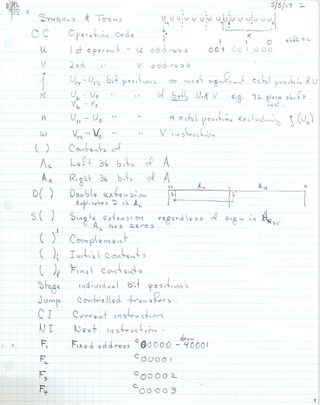 Symbols & Terms
5/5/57 2
OC Operation Code
1 1 0
001 001 000
shift 72
U 1st operand - U address
V 2nd " V address
j U14-U12 bit positions or most significant octal position of U
K U6-U0 " " of both U&V e.g. 72 place shift
V6-V0 inst.
n U11-U0 " " 4 octal position excluding j (Un)
w V14-V0 " " V instruction
( ) Contents of
AL Left 36 bits of A
AR Right 36 bits of A
D( ) Double extension
duplicates S in AL
AL AR
S S
S( ) Single extension regardless of sign in AR35
AL has zeros
( )' Complement
( )i Initial contents
( )f Final contents
Stage individual bit positions
Jump Controlled transfers.
CI Current instruction
NI Next instruction.
F1 Fixed address 00000 - 40001
F2 00001
F3 00002
F4 00003